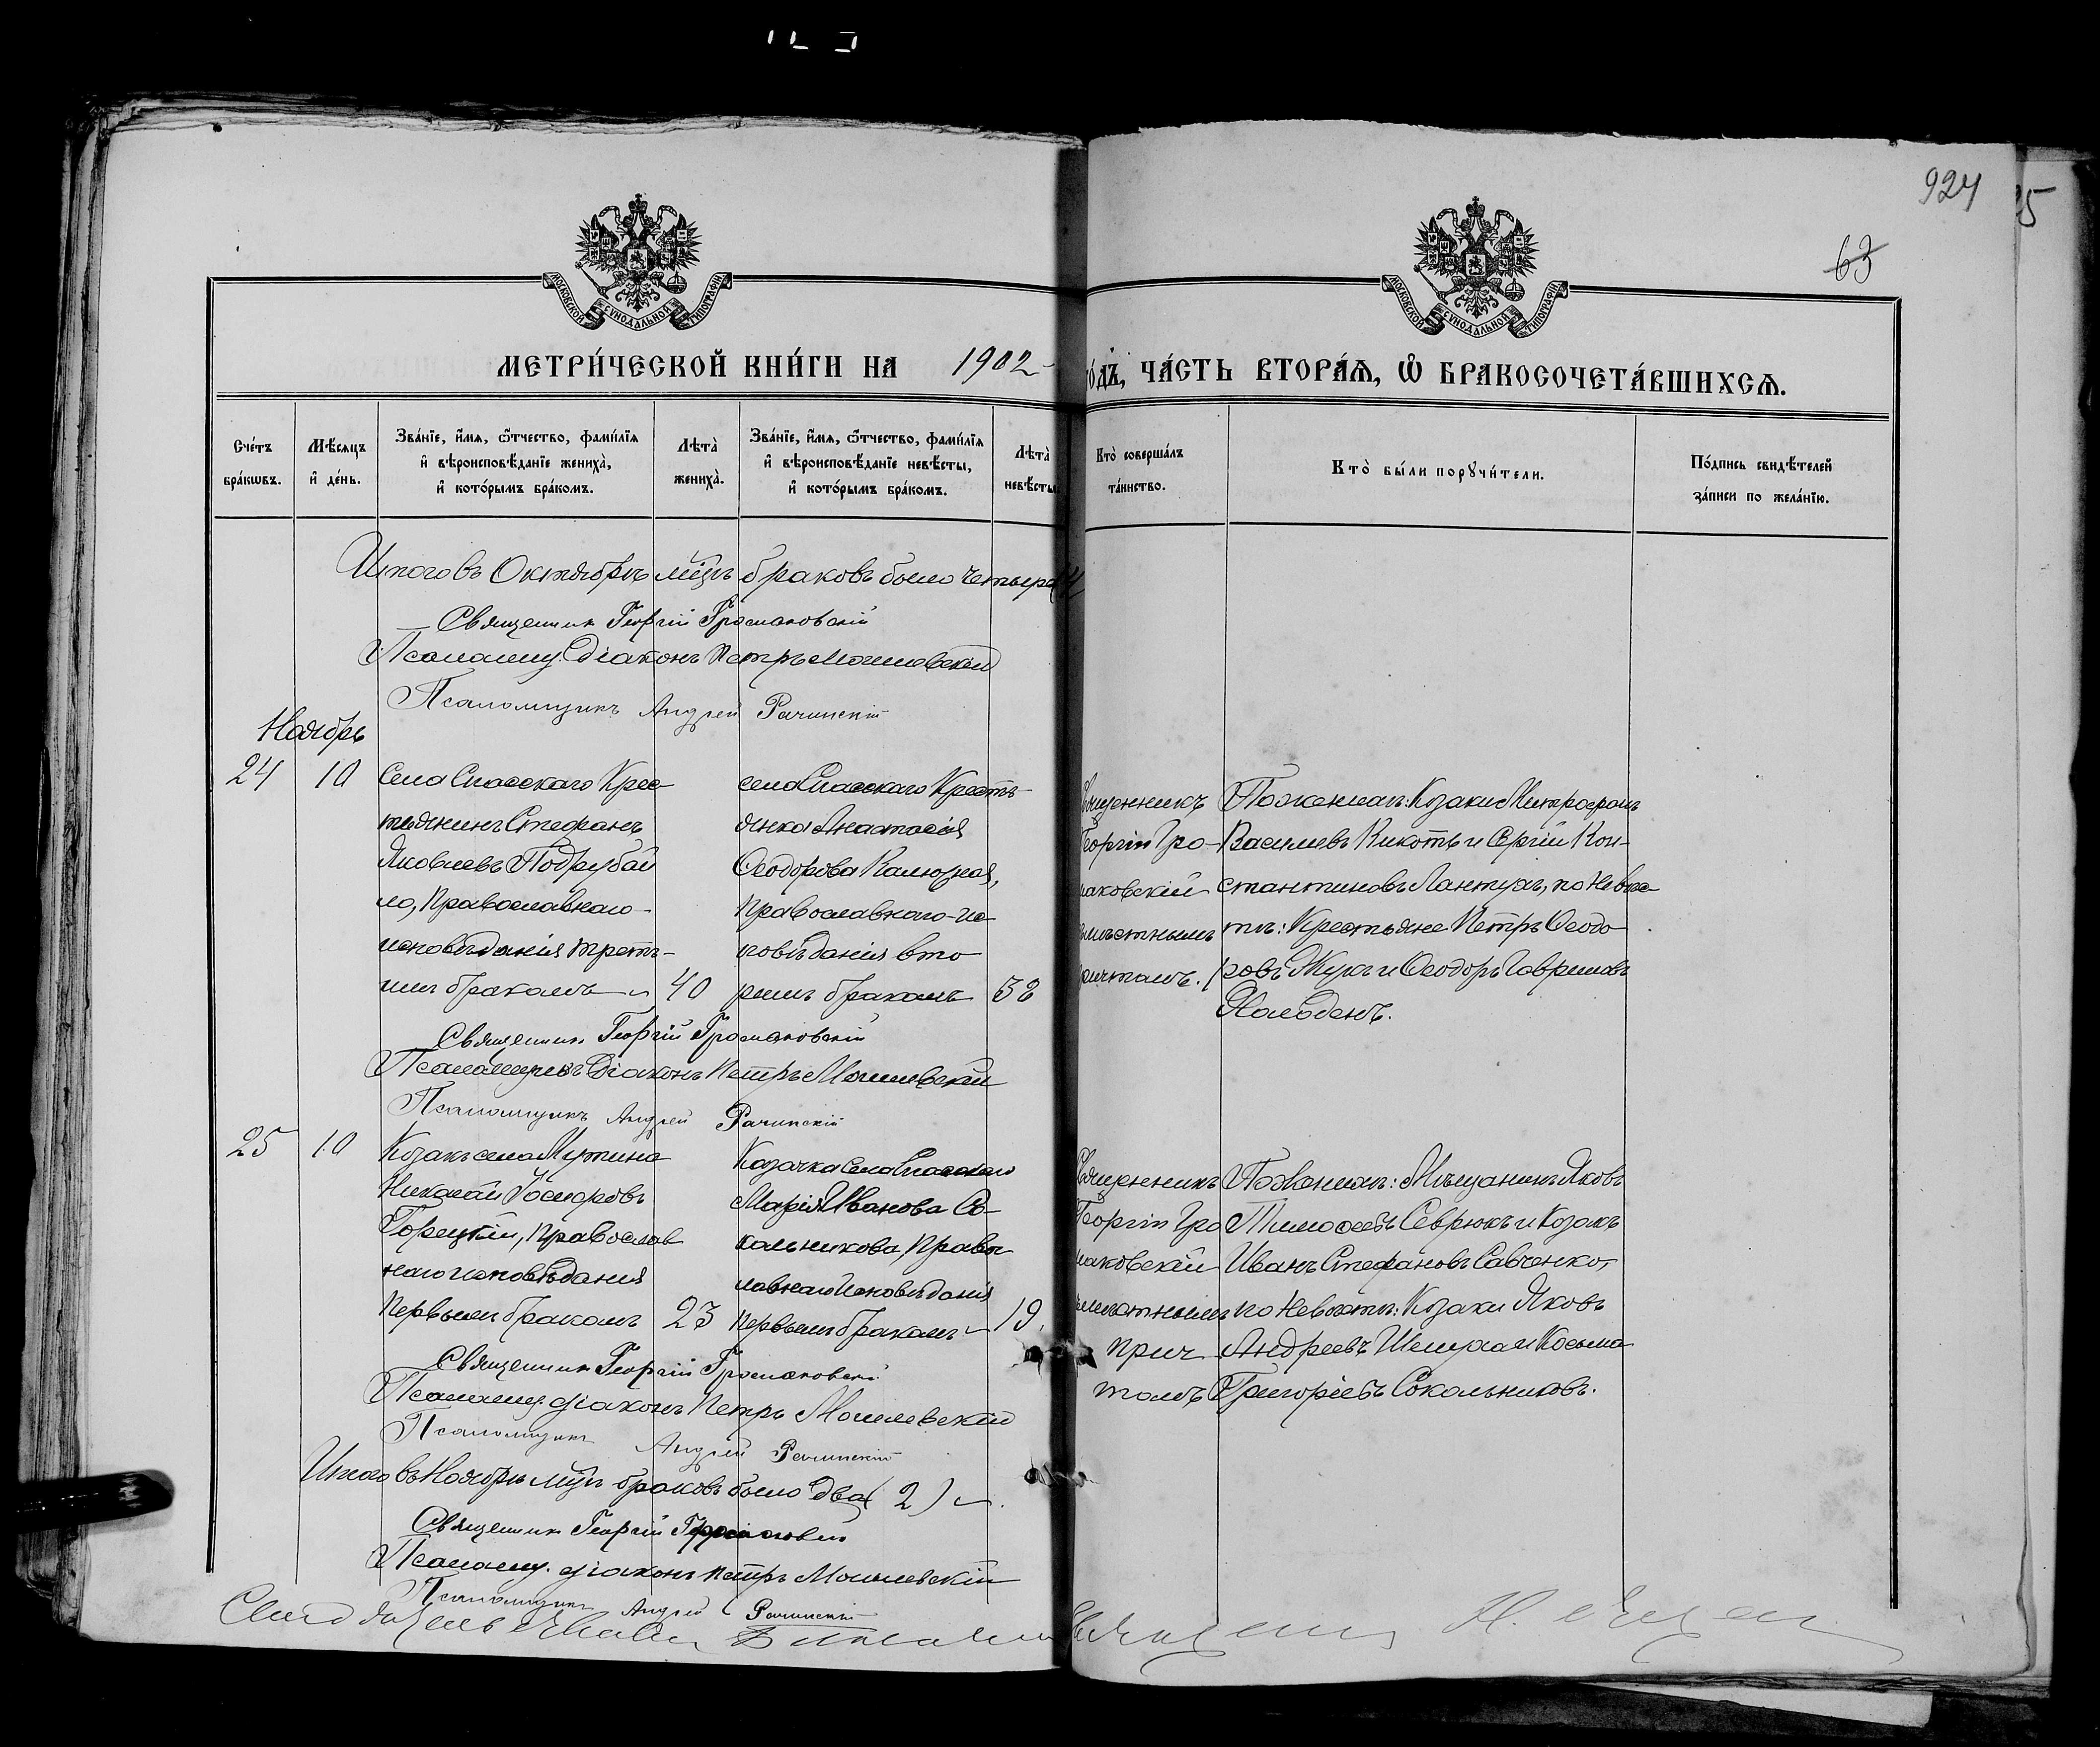 924
63
25
МОСКОВСКОЙ СУНОДАЛЬНОЙ ТИПОГРАФІИ
МОСКОВСКОЙ СУНОДАЛЬНОЙ ТИПОГРАФІИ
МЕТРИ́ЧЕСКОЙ КНИ́ГИ НА 1902 го́дъ, ЧА́СТЬ ВТОРА́Ѧ, Ѽ БРАКОСОЧЕТА́ВШИХСѦ.
Сче́тъ бра́кѡвъ.
Мѣ́сяцъ и҆ де́нь.
Зва́нїе, и҆́мя, ѻ҆́тчество, фами́лїя и҆ вѣроисповѣ́данїе жениха̀, и҆ кото́рымъ бра́комъ.
Лѣта̀ жениха̀.
Зва́нїе, и҆́мя, ѻ҆́тчество, фами́лїя и҆ вѣроисповѣ́данїе невѣ́сты, и҆ кото́рымъ бра́комъ.
Лѣта̀ невѣ́сты
Кто̀ соверша́лъ та́инство.
Кто̀ бы́ли порꙋчи́тели.
По́дпись свидѣ́телей за́писи по жела́нїю.
Итого въ Октябрѣ мцѣ браковъ было четыре (4
Священникъ Георгій Громаковскій
Псаломщ. Діаконъ Петръ Могилевскій
Псаломщикъ Андрей Рачинскій
Ноябрь
24
10
Села Спасскаго Крес-
тьянинъ Стефанъ
Яковлевъ Подрубай
ло, Православнаго
исповѣданія треть-
имъ бракомъ
40
села Спасскаго Кресть-
янка Анастасія
Ѳеодорова Калюжная,
Православнаго ис-
повѣданія вто
рымъ бракомъ
38
Священникъ
Георгій Гро-
маковскій
съ мѣстнымъ
причтомъ.
По женихѣ: Козаки Митрофанъ
Василіевъ Кикоть и Сергій Кон-
стантиновъ Лантухъ, по Невѣс-
тѣ: Крестьяне Петръ Ѳеодо
ровъ Жукъ и Ѳеодоръ Гавриловъ
Священникъ Георгій Громаковскій
Псаломщикъ Діаконъ Петръ Могилевскій
Псаломщикъ Андрей Рачинскій
25
10
Козакъ села Мутина
Николай
Горецкій, Православ
наго исповѣданія
Первымъ бракомъ
23
Козачка Села Спасскаго
Марія Иванова Со-
кольникова, Правос
лавнаго Исповѣданія
Первымъ бракомъ
19.
Священникъ
Георгій Гро
маковскій
съ мѣстнымъ
прич
томъ
По Женихѣ: Мѣщанинъ Яковъ
Тимоѳеевъ Севрюкъ и Козакъ
Иванъ Стефановъ Савченко,
по Невѣстѣ: Козаки Яковъ
Андреевъ и Косьма
Григоріевъ Сокольниковъ.
Священникъ Георгій Громаковскій
Псаломщ. діаконъ Петръ Могилевскій
Псаломщикъ Андрей Рачинскій
Итого въ Ноябрѣ мцѣ браковъ было два (2)
Священникъ Георгій Громаковскій
Псаломщ. діаконъ Петръ Могилевскій
Псаломщикъ Андрей Рачинскій